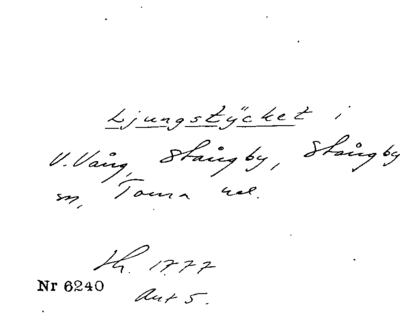 Ljungstycket i
V. Vång, Stångby, Stångby
sn, Torna hd.
Th. 1777
Nr 6240
Akt 5.